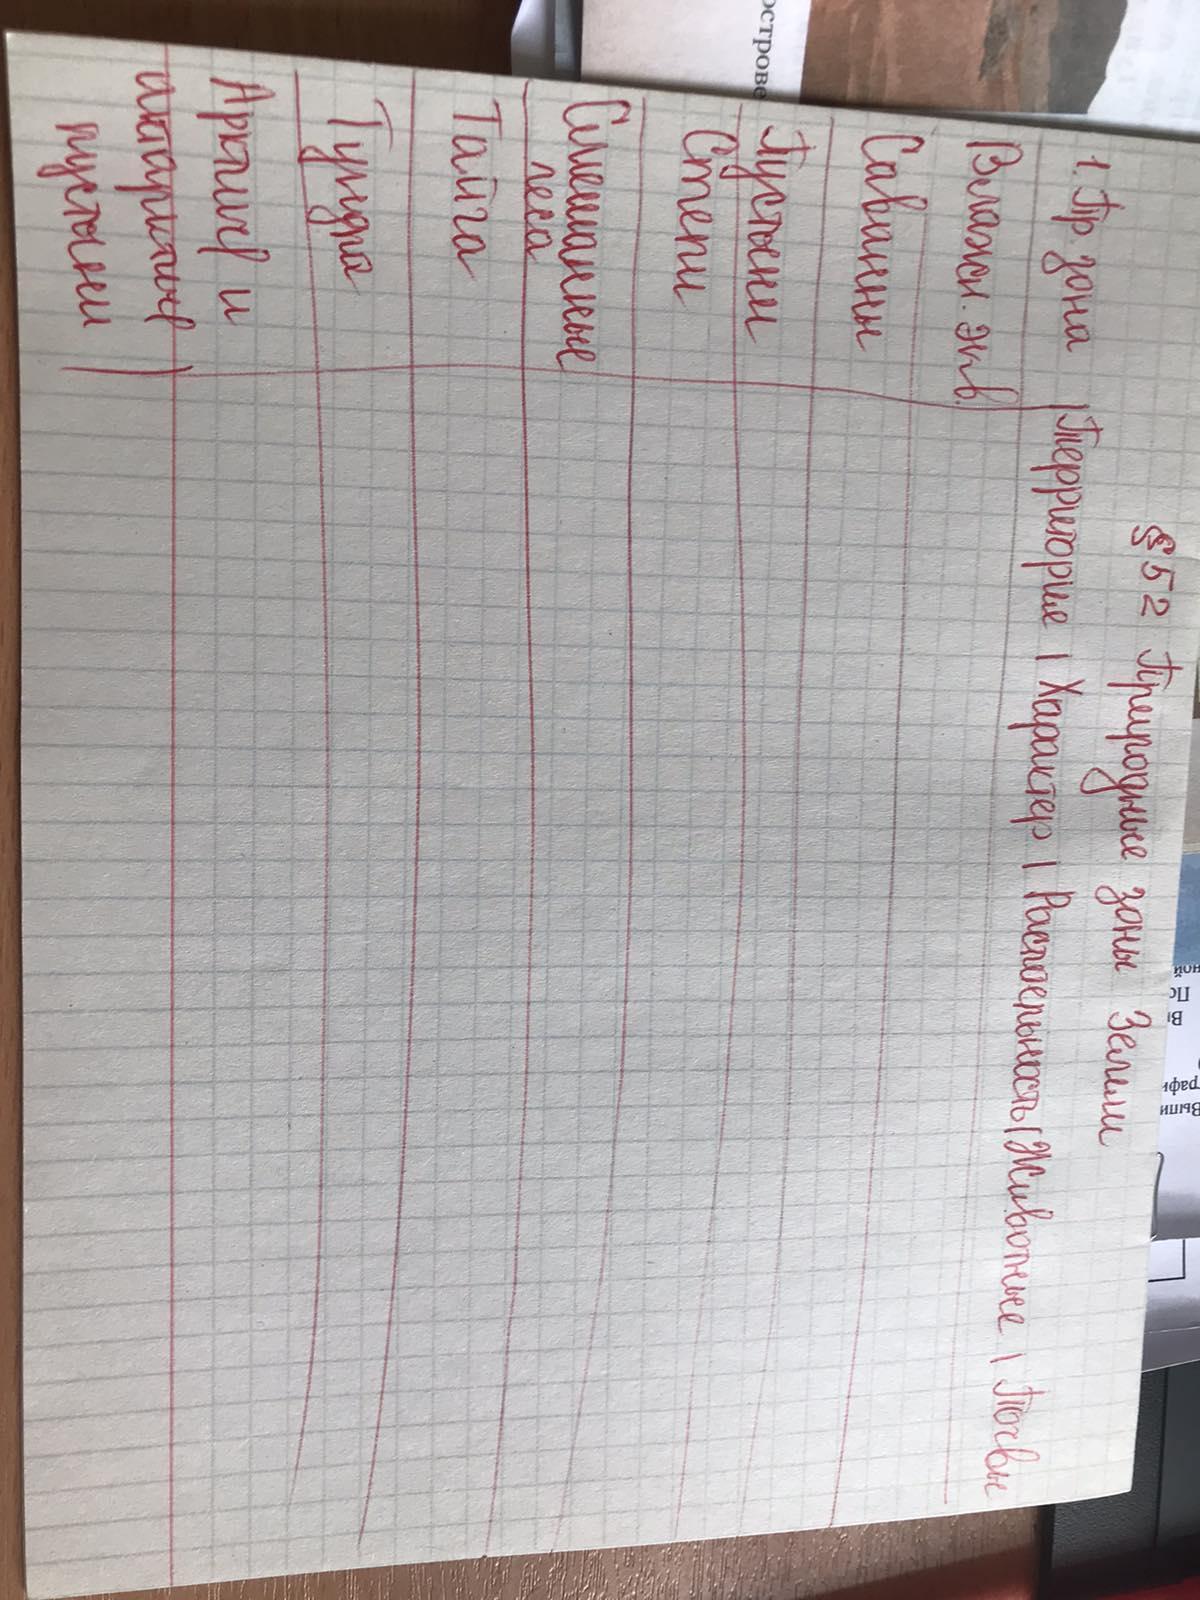 § 52 Природные зоны Земли
1. Пр. зона | Территория | Характер | Растительность | Животные | Почвы
Влажн. экв.
Саванны
Пустыни
Степи
Смешанные
леса
Тайга
Тундра
Арктич и
антарктич
пустыни
острове
ной
Выпи